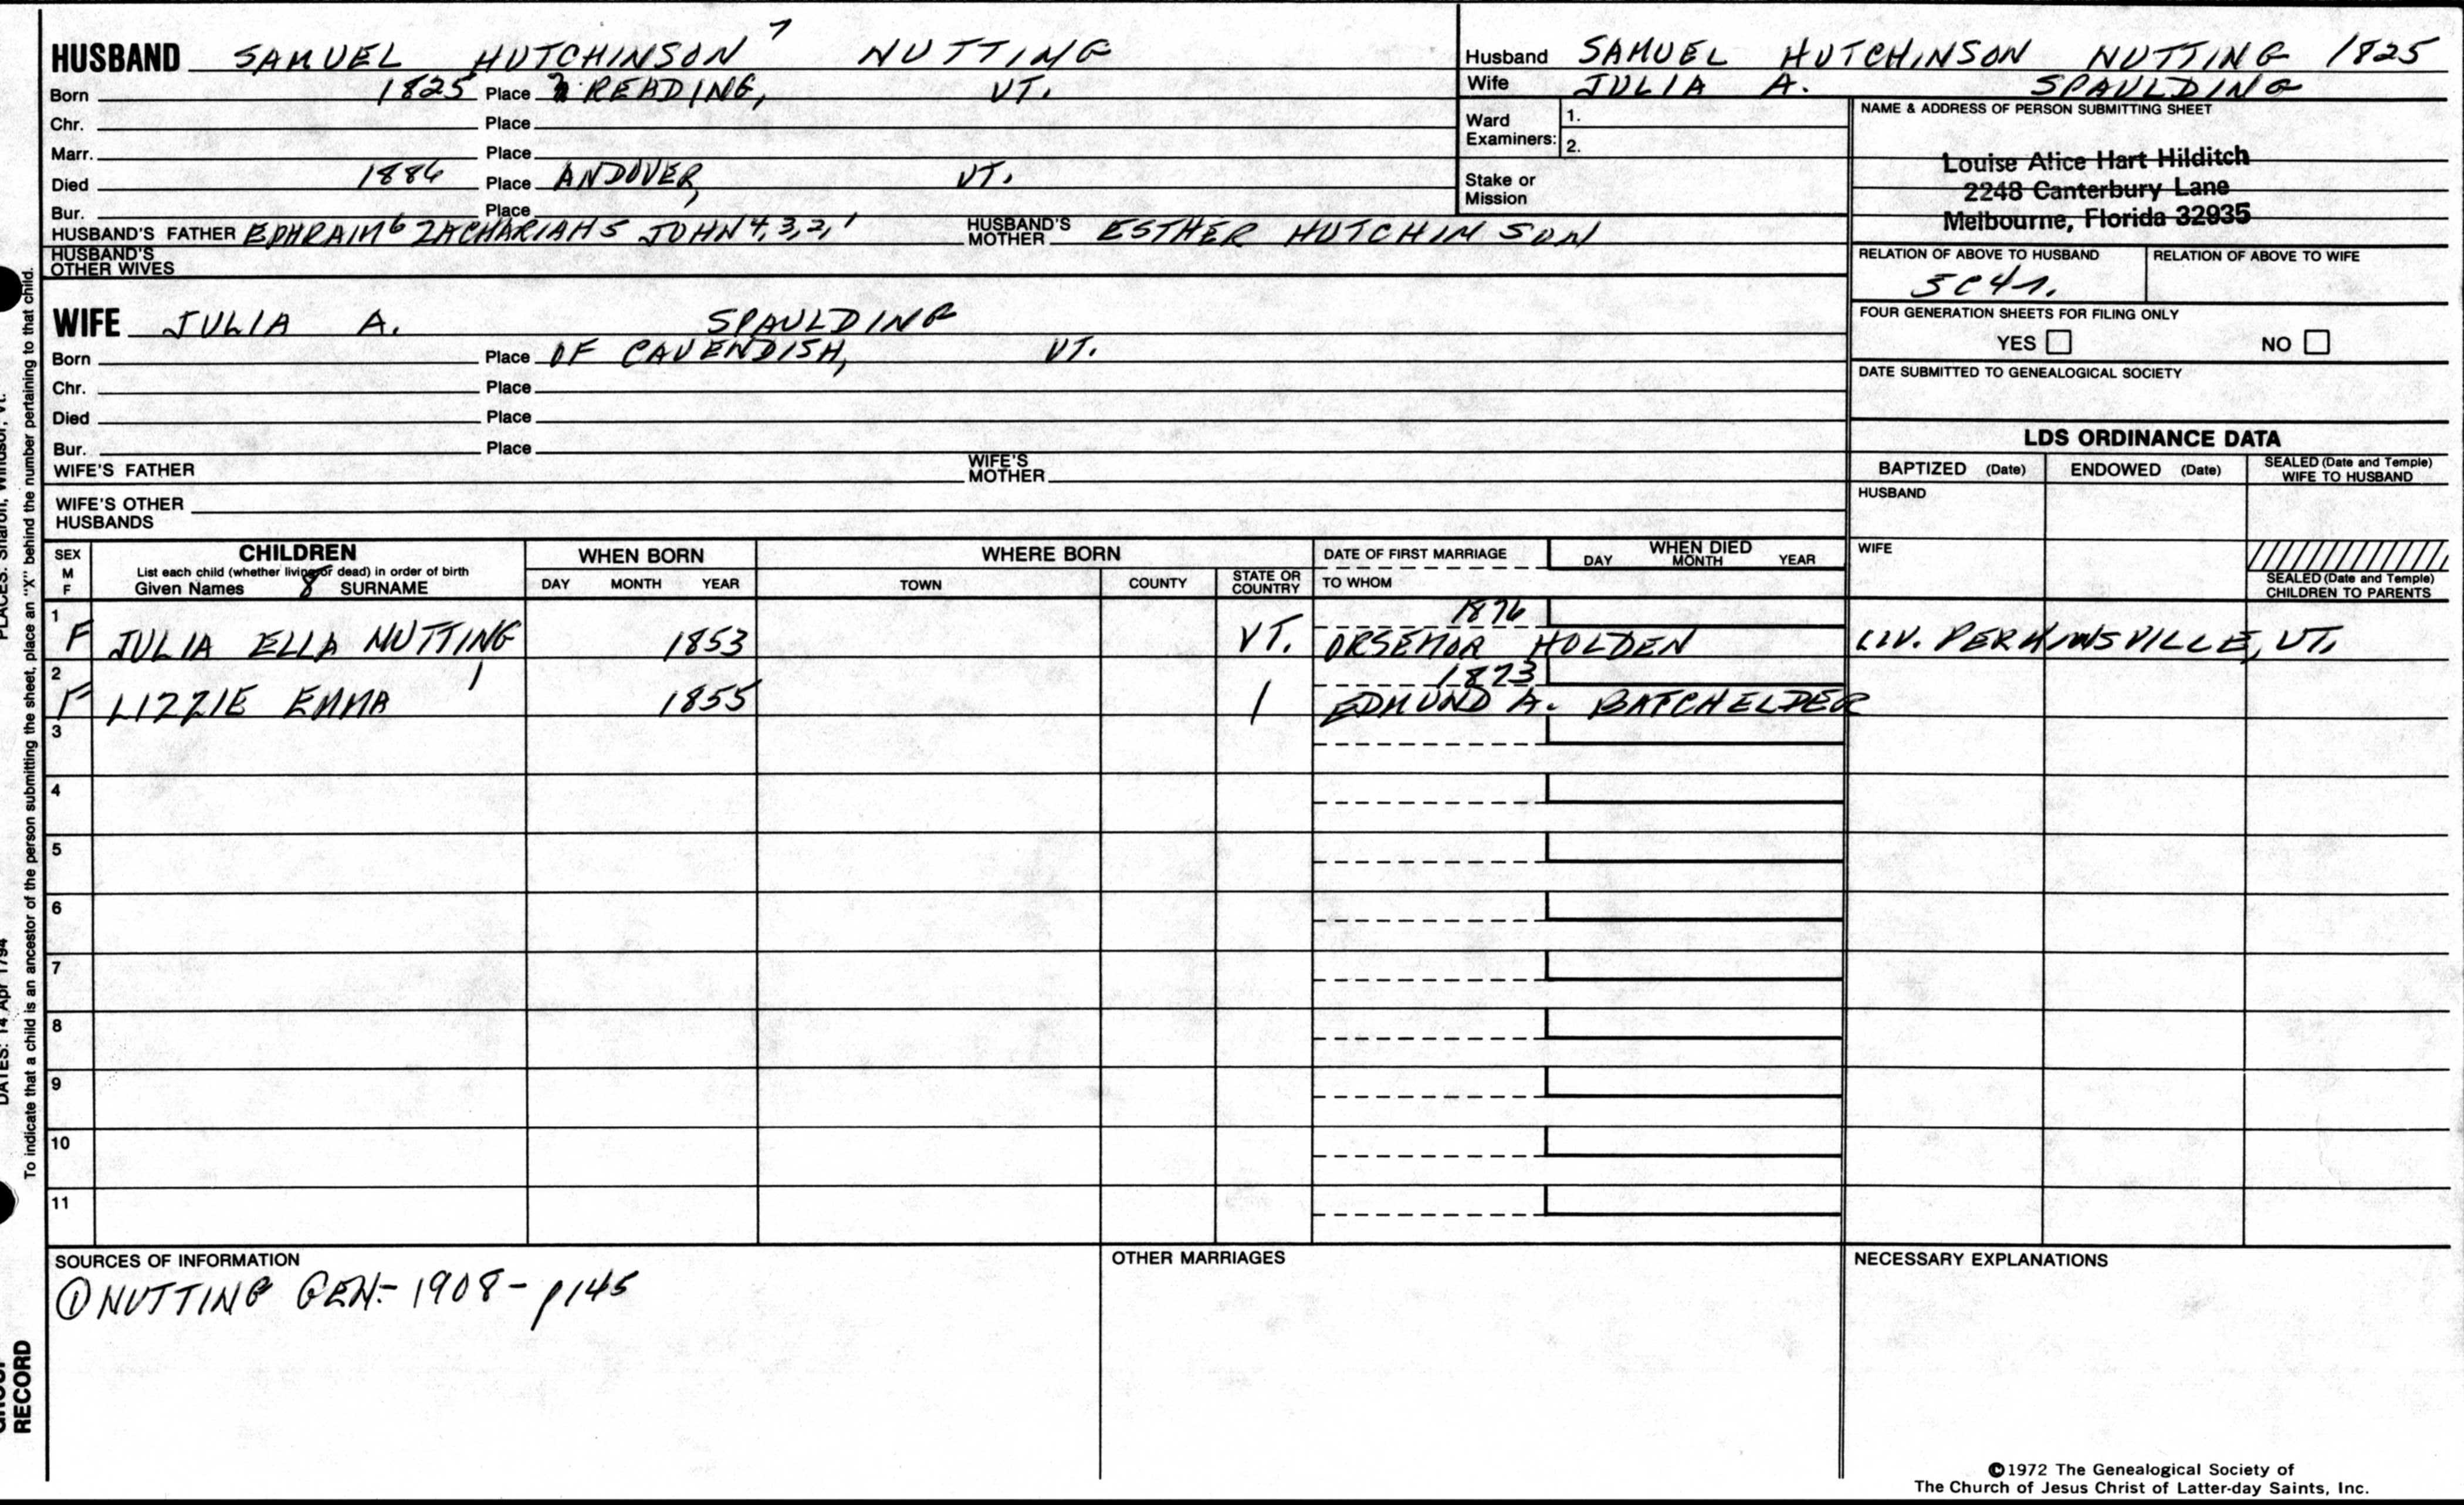 HUSBAND SAMUEL HUTCHINSON 7 NUTTING
Born 1825 Place READING, VT.
Chr. Place
Marr. Place
Died 1886 Place ANDOVER, VT.
Bur. Place
HUSBAND'S FATHER EPHRAIM 6 ZACHARIAH 5 JOHN 4, 3, 2, 1 HUSBAND'S MOTHER ESTHER HUTCHINSON
HUSBAND'S OTHER WIVES
Husband SAMUEL HUTCHINSON NUTTING 1825
Wife JULIA A. SPAULDING
Ward Examiners: 1.
2.
Stake or Mission
NAME & ADDRESS OF PERSON SUBMITTING SHEET
Louise Alice Hart Hilditch
2248 Canterbury Lane
Melbourne, Florida 32935
RELATION OF ABOVE TO HUSBAND RELATION OF ABOVE TO WIFE
5C4r.
FOUR GENERATION SHEETS FOR FILING ONLY
YES NO
DATE SUBMITTED TO GENEALOGICAL SOCIETY
WIFE JULIA A. SPAULDING
Born Place OF CAVENDISH, VT.
Chr. Place
Died Place
Bur. Place
WIFE'S FATHER WIFE'S MOTHER
WIFE'S OTHER HUSBANDS
LDS ORDINANCE DATA
BAPTIZED (Date) ENDOWED (Date) SEALED (Date and Temple) WIFE TO HUSBAND
HUSBAND
WIFE
SEALED (Date and Temple) CHILDREN TO PARENTS
SEX M F
CHILDREN
List each child (whether living or dead) in order of birth
Given Names 8 SURNAME
WHEN BORN
DAY MONTH YEAR
WHERE BORN
TOWN COUNTY STATE OR COUNTRY
DATE OF FIRST MARRIAGE
TO WHOM
WHEN DIED
DAY MONTH YEAR
1 1876
F JULIA ELLA NUTTING 1853 VT. ORSEMOR HOLDEN LIV. PERKINSVILLE, VT.
2 1873
F LIZZIE EMMA 1855 EDMUND A. BATCHELDER
3
4
5
6
7
8
9
10
11
SOURCES OF INFORMATION
① NUTTING GEN.- 1908 - p145
OTHER MARRIAGES
NECESSARY EXPLANATIONS
©1972 The Genealogical Society of
The Church of Jesus Christ of Latter-day Saints, Inc.
To indicate that a child is an ancestor of the person submitting the sheet, place an "X" behind the number pertaining to that child.
PLACES: Sharon, Windsor, Vt.
DATES: 14 Apr 1794
RECORD